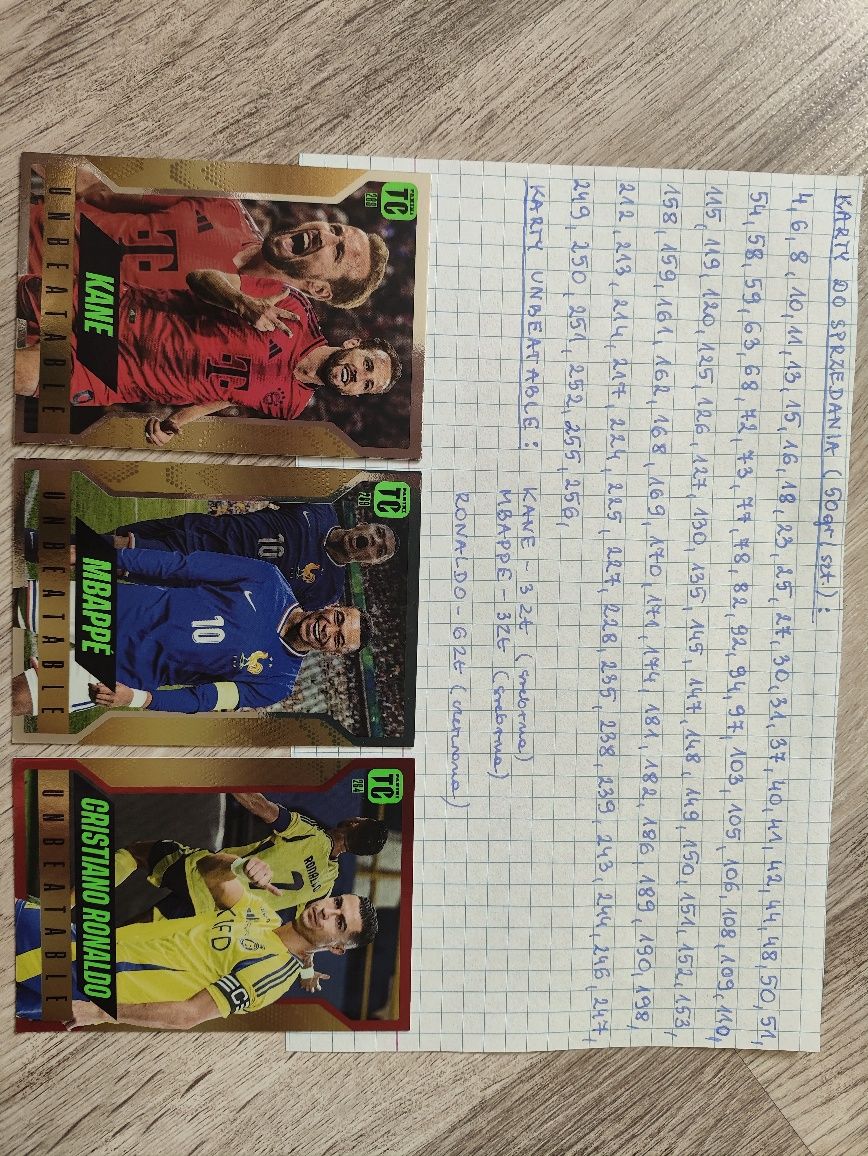 KARTY DO SPRZEDANIA (50gr szt):
4, 6, 8, 10, 11, 13, 15, 16, 18, 23, 25, 27, 30, 31, 37, 40, 41, 42, 44, 48, 50, 51,
54, 58, 59, 63, 68, 72, 73, 77, 78, 82, 92, 94, 97, 103, 105, 106, 108, 109, 110,
115, 119, 120, 125, 126, 127, 130, 135, 145, 147, 148, 149, 150, 151, 152, 153,
158, 159, 161, 162, 168, 169, 170, 171, 174, 181, 182, 186, 189, 190, 198,
212, 213, 214, 217, 224, 225, 227, 228, 235, 238, 239, 243, 244, 246, 247,
249, 250, 251, 252, 255, 256,
KARTY UNBEATABLE: KANE - 3 zł (srebrna)
MBAPPE - 3zł (srebrna)
RONALDO - 6 zł (czerwona)
PANINI
TC
KANE
UNBEATABLE
PANINI
TC
10
10
MBAPPÉ
UNBEATABLE
PANINI
TC
264
RONALDO
7
CRISTIANO RONALDO
UNBEATABLE